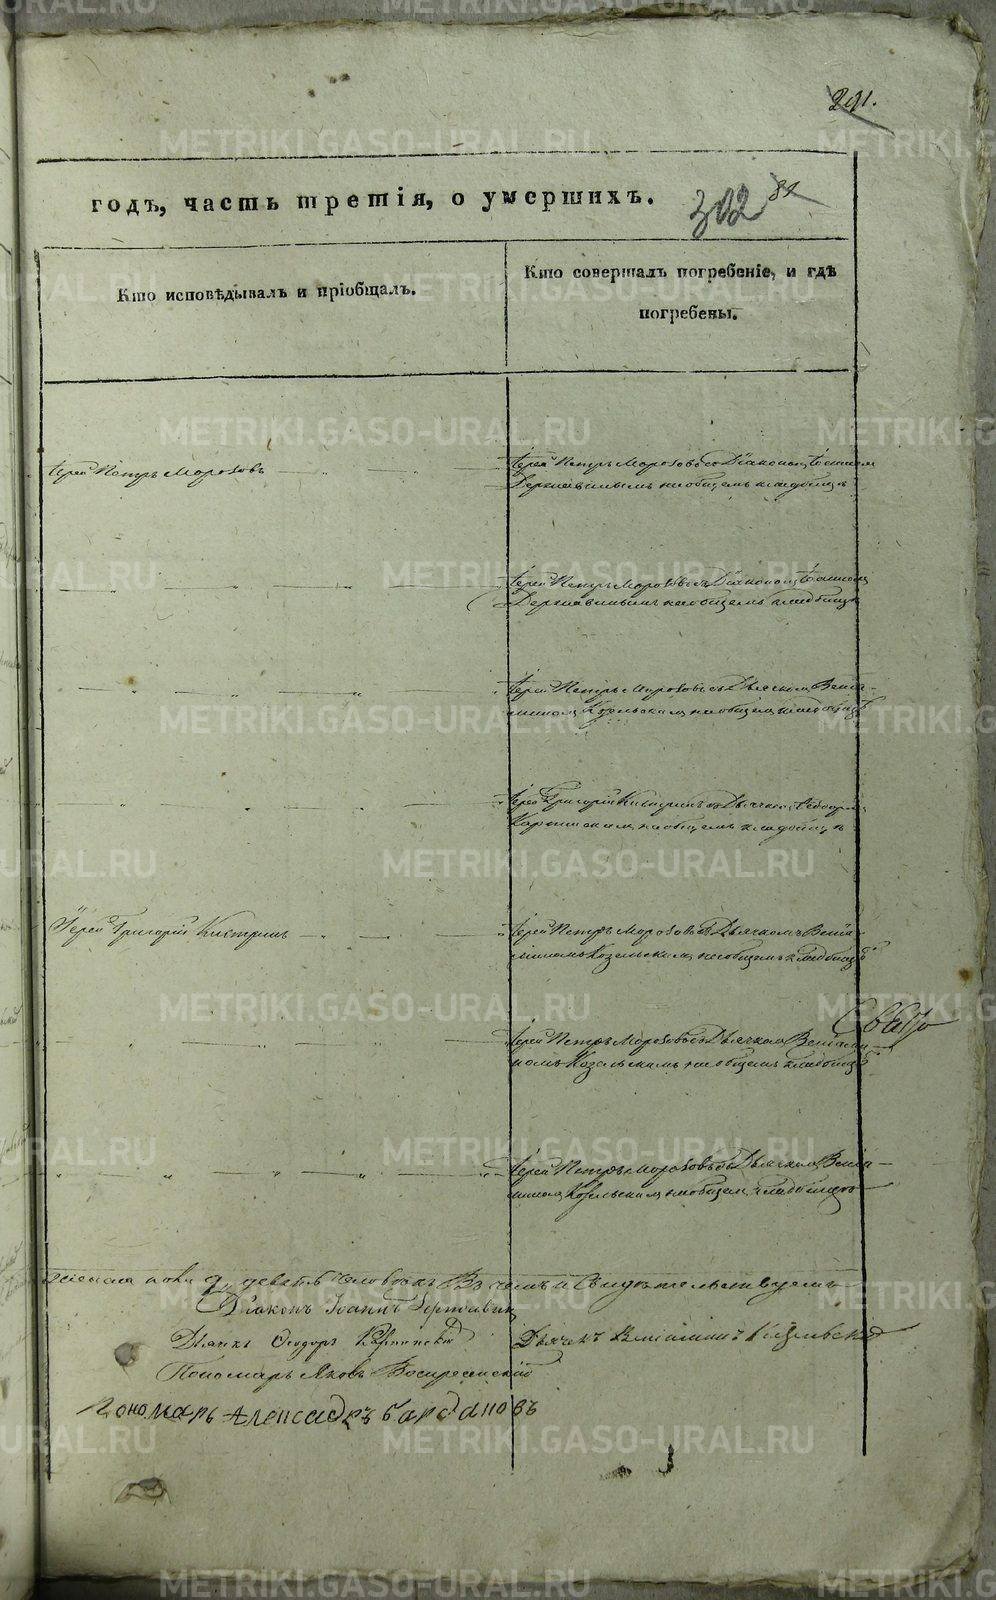 291.
годъ, часть третія, о умершихъ.
302 81
Кто исповѣдывалъ и пріобщалъ.
Кто совершалъ погребеніе, и гдѣ
погребены.
Іерей Петръ Морозовъ
Іерей Петръ Морозовъ со Діакономъ Іоанномъ
Державинымъ на общемъ кладбищѣ
Іерей Петръ Морозовъ съ Діакономъ Іоанномъ
Державинымъ на общемъ кладбищѣ
Іерей Петръ Морозовъ съ Дьячкомъ Веніа-
миномъ Козельскимъ на общемъ кладбищѣ
Іерей Григорій съ Дьячкомъ Ѳеодоромъ
на общемъ кладбищѣ
Іерей Григорій
Іерей Петръ Морозовъ съ Дьячкомъ Веніа-
миномъ Козельскимъ на общемъ кладбищѣ
Іерей Петръ Морозовъ съ Дьячкомъ Веніами-
номъ Козельскимъ на общемъ кладбищѣ
Іерей Петръ Морозовъ съ Дьячкомъ Веніа-
миномъ Козельскимъ на общемъ кладбищѣ
пола 9, девять человѣкъ Въ чемъ и Свидѣтельствуемъ
Діаконъ Іоаннъ Державинъ
Дьячкъ Ѳеодоръ
Дьячекъ Веніаминъ Козельскій
Пономарь Яковъ Воскресенскій
Пономарь Александръ Богдановъ
METRIKI.GASO-URAL.RU